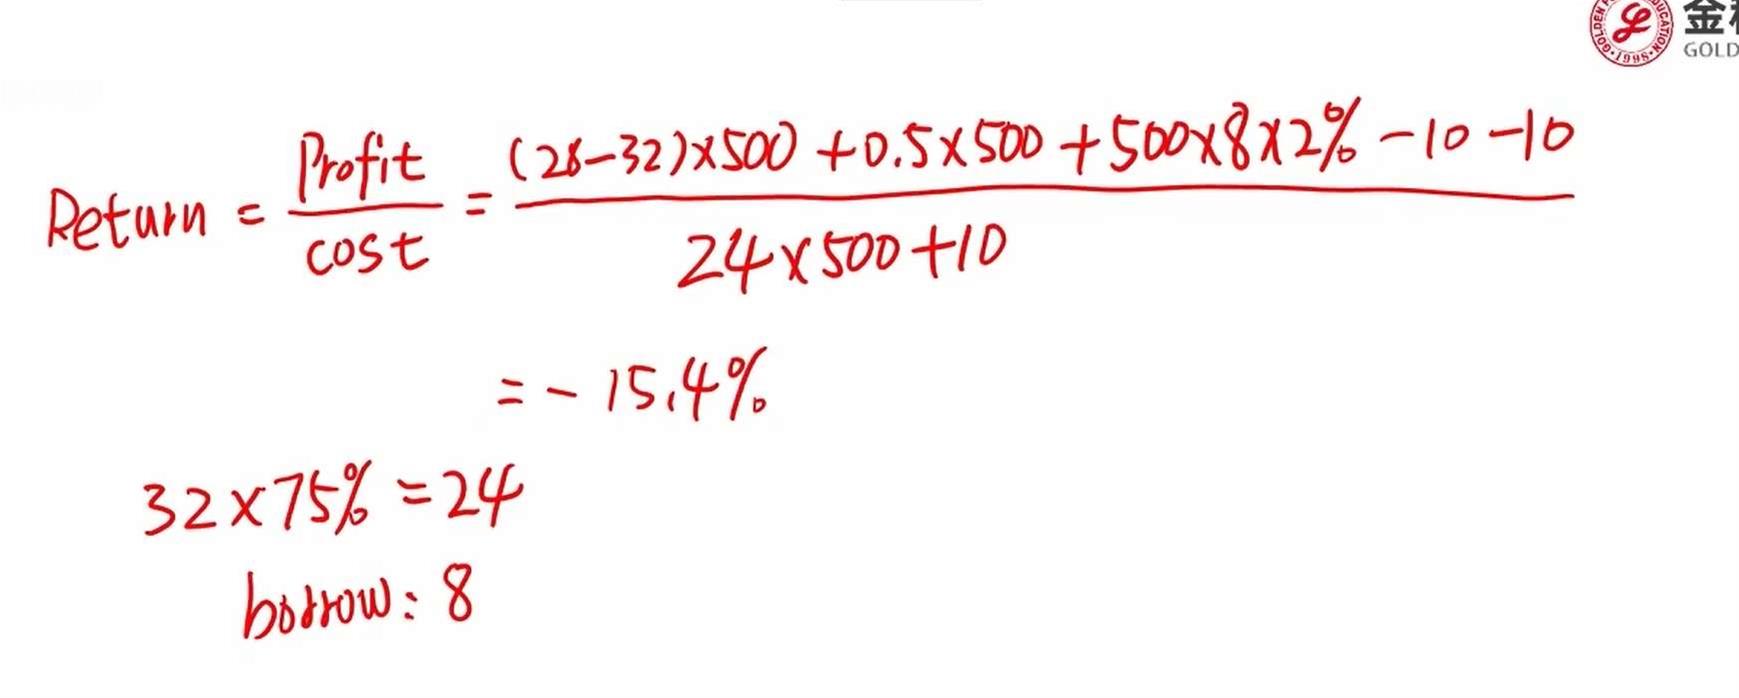 金
GOLD
GOLDEN
UCATION
·1998·
Return = Profit / cost = (28-32)×500 + 0.5×500 + 500×8×2% - 10 - 10 / 24×500+10
= - 15.4%
32×75% = 24
borrow: 8